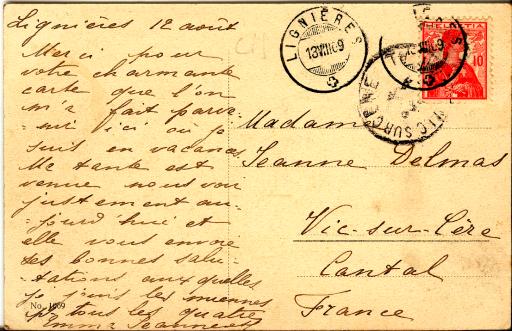 Lignières 12 août
Merci pour
votre charmante
carte que l'on
m'a fait parve-
nir ici où je
suis en vacances
Ma tante est
venue nous voir
justement au-
-jourd'hui et
elle vous envoie
ses bonnes salu-
tations auxquelles
je joins les miennes
pr tous les quatre
Emma Jeanneret
No. 1969
LIGNIÈRES
13 VIII 09
HELVETIA
10
VIC SUR CERE
Madame
Jeanne Delmas
Vic-sur-Cère
Cantal
France